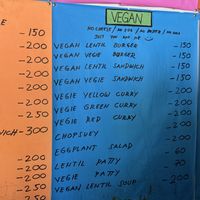 VEGAN
NO CHEESE / NO EGG / NO BUTTER / NO MILK
JUST YOU AND ME
E -150
-200 VEGAN LENTIL BURGER -150
-200 VEGAN VEGIE BURGER -150
-200 VEGAN LENTIL SANDWICH -150
-200 VEGAN VEGIE SANDWICH -150
-200 VEGIE YELLOW CURRY -200
-200 VEGIE GREEN CURRY -200
-250 VEGIE RED CURRY -200
WICH-300 CHOPSUEY -200
EGGPLANT SALAD -60
-200 LENTIL PATTY -70
-200 VEGIE PATTY
-250 VEGAN LENTIL SOUP -200
-250